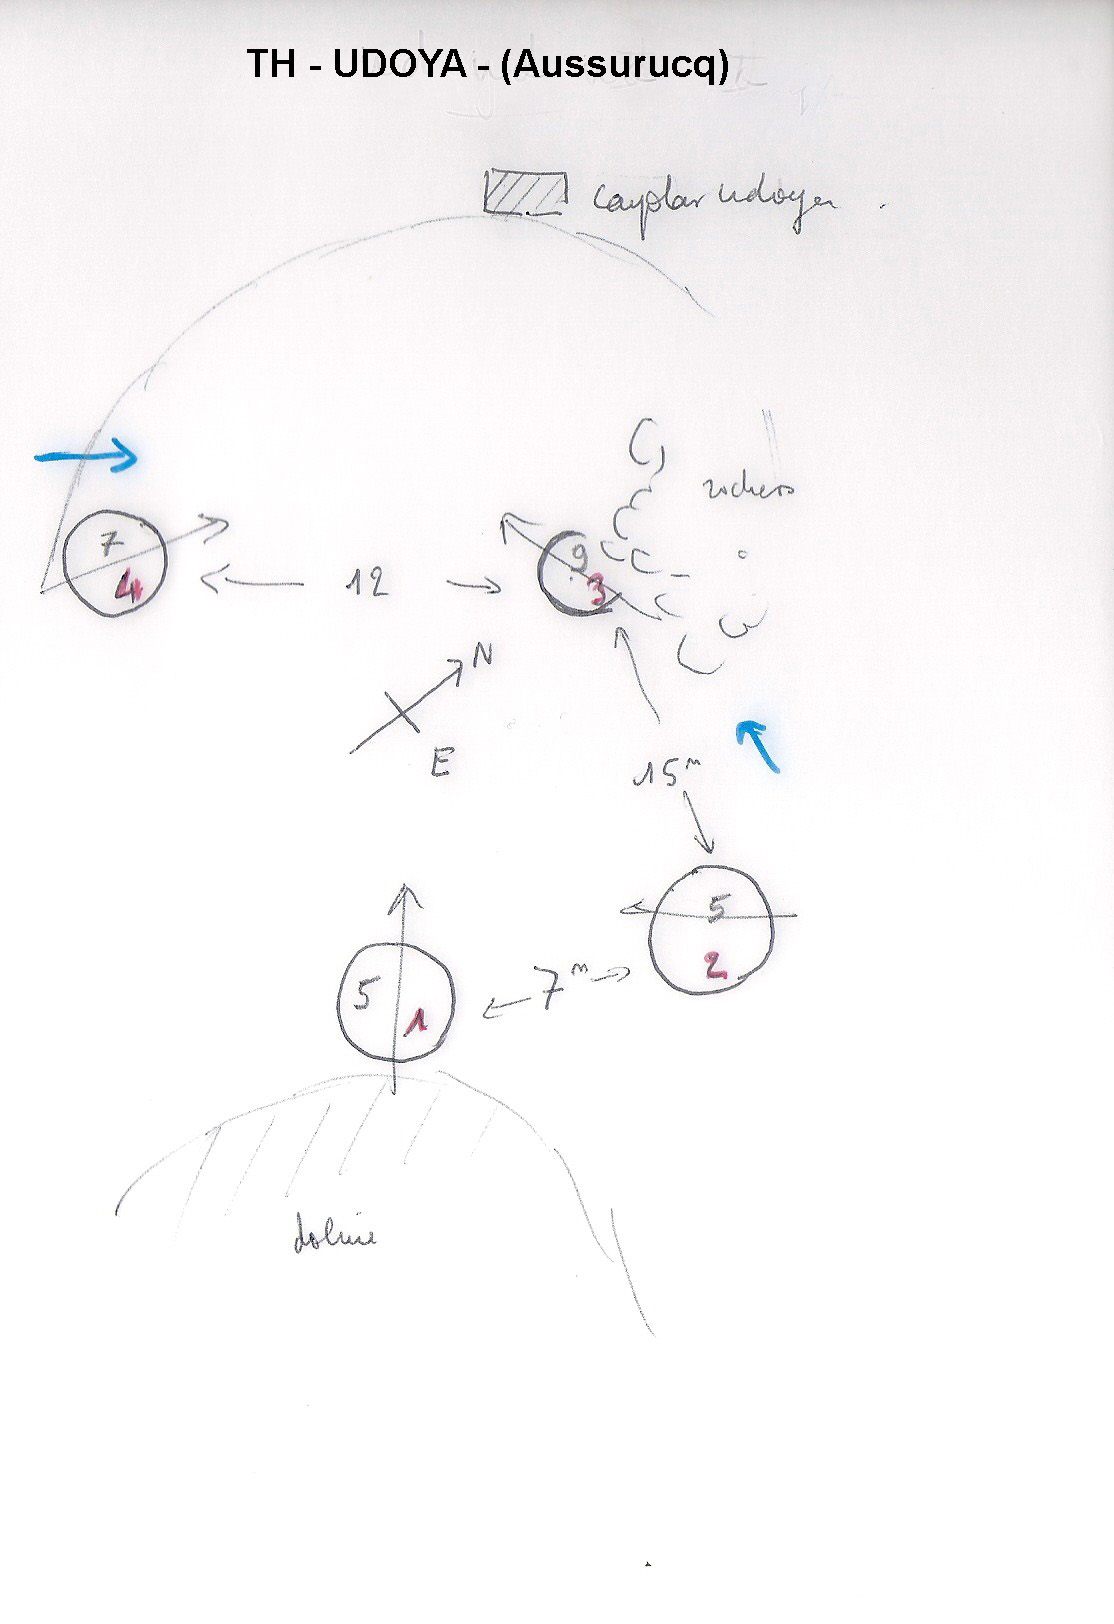 TH - UDOYA - (Aussurucq)
cayolar udoya
rochers
7
4
12
9
3
N
E
15m
5
2
5
1
7m
doline